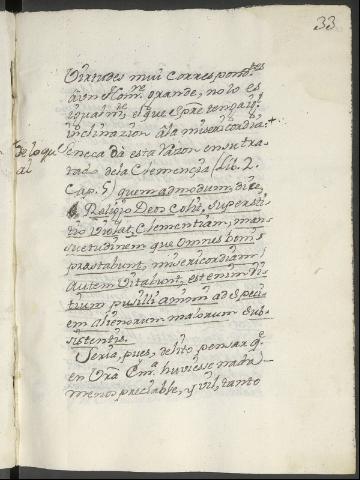 33
Virtudes mui correspond.tes
à vn Hom.e grande, no lo es
igualm.te el que s.pre tenga
inclinazion à la misericordia:+
De lo qu
al
Seneca dà esta razon en su tra-
tado de la Clemençia (Lib. 2.
Cap. 5) quemadmodum, dize,
Religio Deos Colit, supersti-
tio violat, Clementiam, man-
suetudinem que omnes boni
præstabunt, misericordiam,
autem vitabunt, est enim vi-
tium pusilli animi, ad speci-
em alienorum malorum sub-
sistentis.
Seria, pues, delito pensar q.e
en Vra Em.a huviesse nada
menospreciable, y vil, tanto